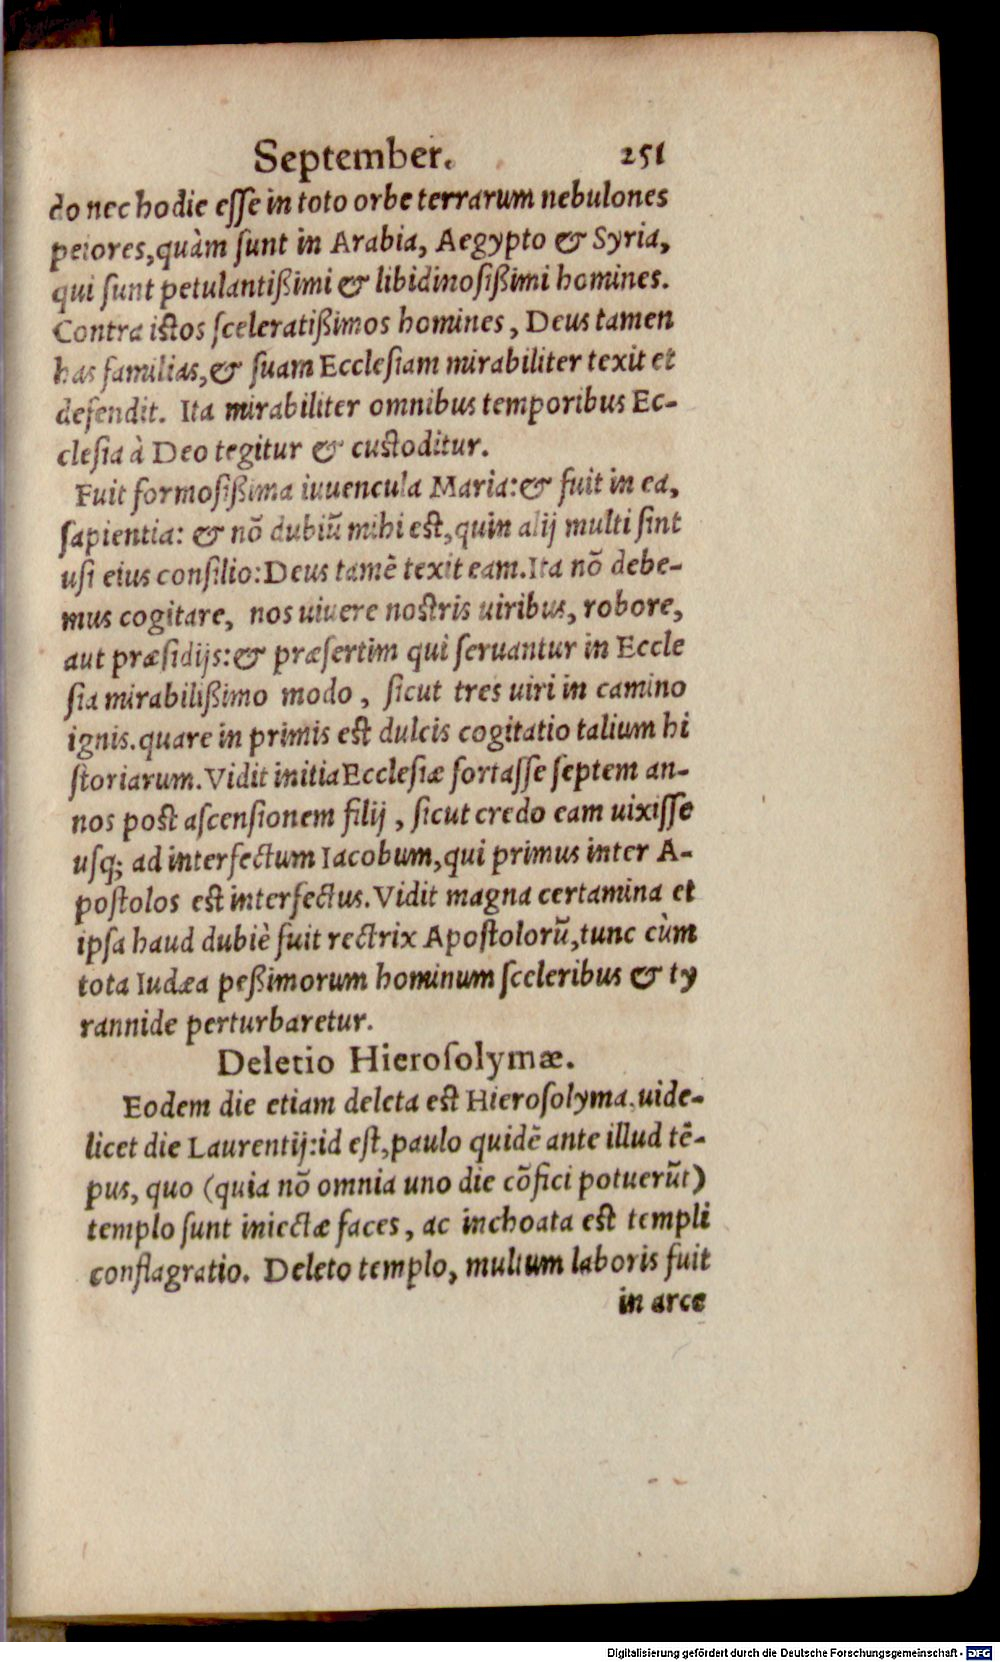 September. 251
do nec hodie eſſe in toto orbe terrarum nebulones
peiores, quàm ſunt in Arabia, Aegypto & Syria,
qui ſunt petulantißimi & libidinoſißimi homines.
Contra iſtos ſceleratißimos homines, Deus tamen
has familias, & ſuam Eccleſiam mirabiliter texit et
defendit. Ita mirabiliter omnibus temporibus Ec-
cleſia à Deo tegitur & cuſtoditur.
Fuit formoſißima iuuencula Maria: & fuit in ea,
ſapientia: & nõ dubiũ mihi eſt, quin alij multi ſint
uſi eius conſilio: Deus tamẽ texit eam. Ita nõ debe-
mus cogitare, nos uiuere noſtris uiribus, robore,
aut præſidijs: & præſertim qui ſeruantur in Eccle
ſia mirabilißimo modo, ſicut tres uiri in camino
ignis. quare in primis eſt dulcis cogitatio talium hi
ſtoriarum. Vidit initia Eccleſiæ fortaſſe ſeptem an-
nos poſt aſcenſionem filij, ſicut credo eam uixiſſe
uſq; ad interfectum Iacobum, qui primus inter A-
poſtolos eſt interfectus. Vidit magna certamina et
ipſa haud dubiè fuit rectrix Apoſtolorũ, tunc cùm
tota Iudæa peßimorum hominum ſceleribus & ty
rannide perturbaretur.
Deletio Hieroſolymæ.
Eodem die etiam deleta eſt Hieroſolyma, uide-
licet die Laurentij: id eſt, paulo quidẽ ante illud tẽ-
pus, quo (quia nõ omnia uno die cõfici potuerũt)
templo ſunt iniectæ faces, ac inchoata eſt templi
conflagratio. Deleto templo, multum laboris fuit
in arce
Digitalisierung gefördert durch die Deutsche Forschungsgemeinschaft - DFG